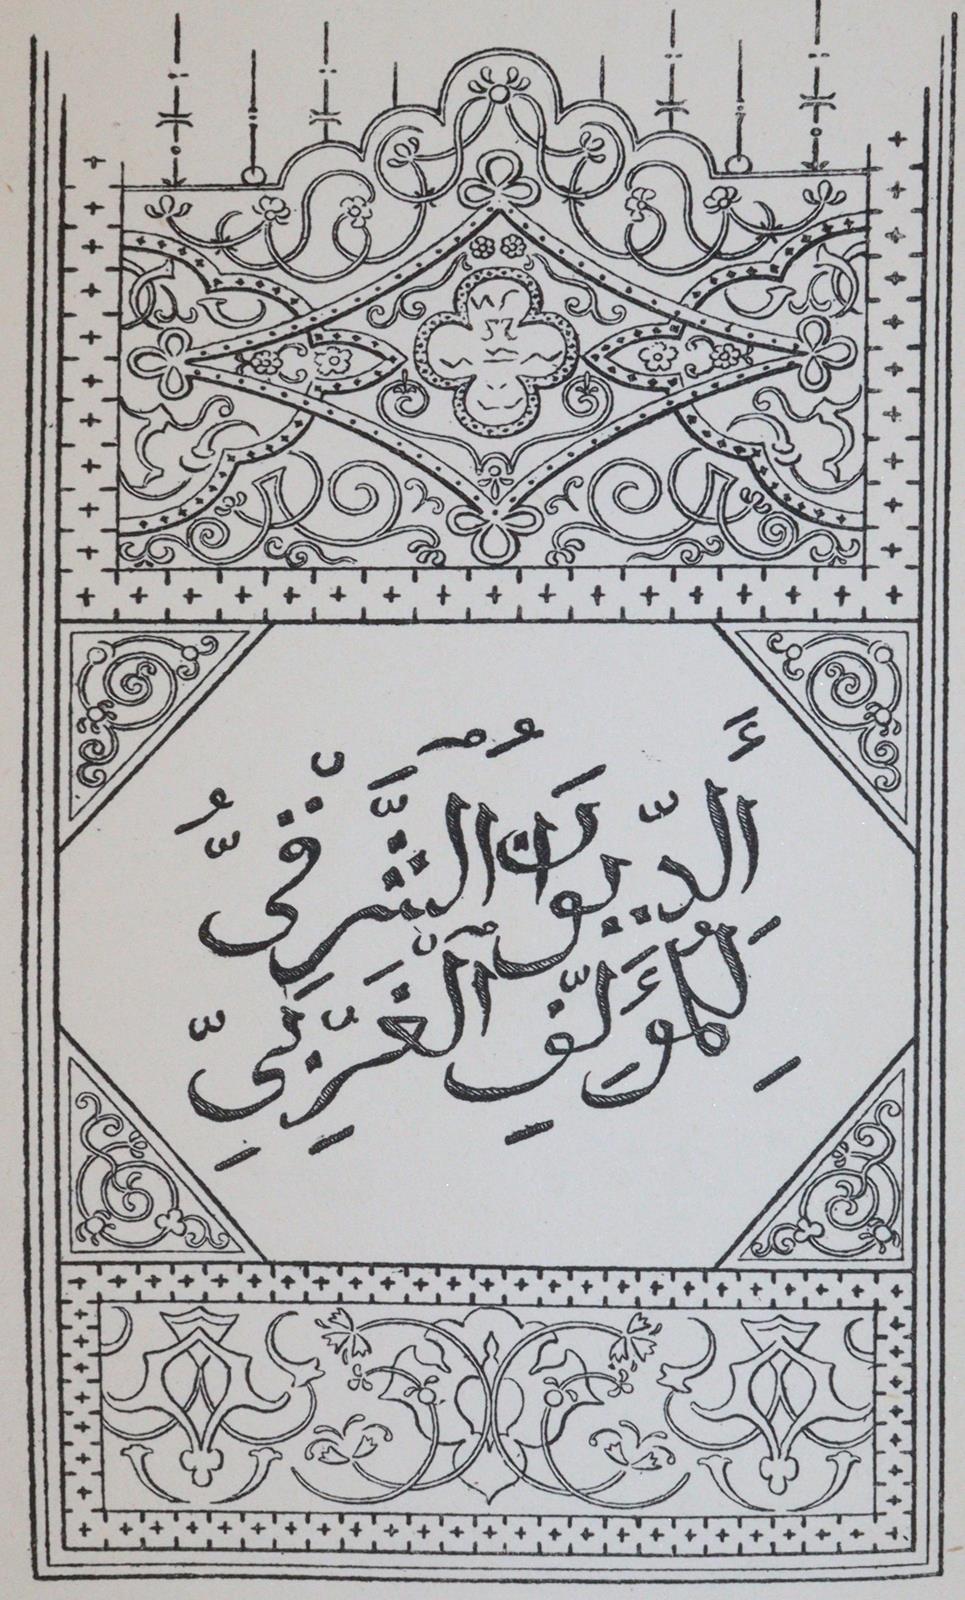 أَلدِّيوَانُ الشَّرْقِيُّ
لِلْمُؤَلِّفِ الْغَرْبِيِّ